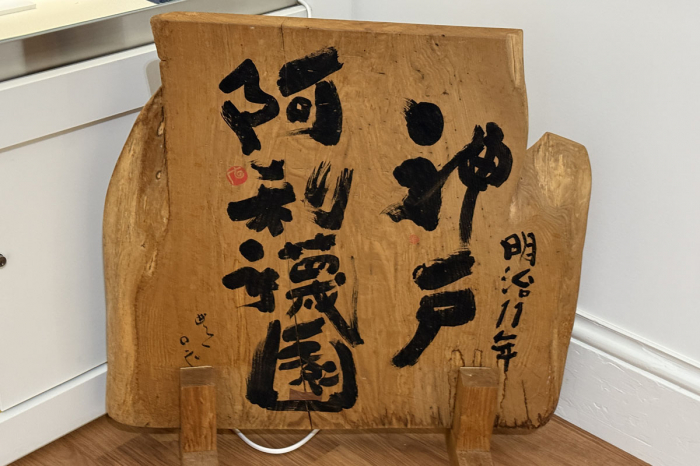 明治11年
神戸
阿利襪園